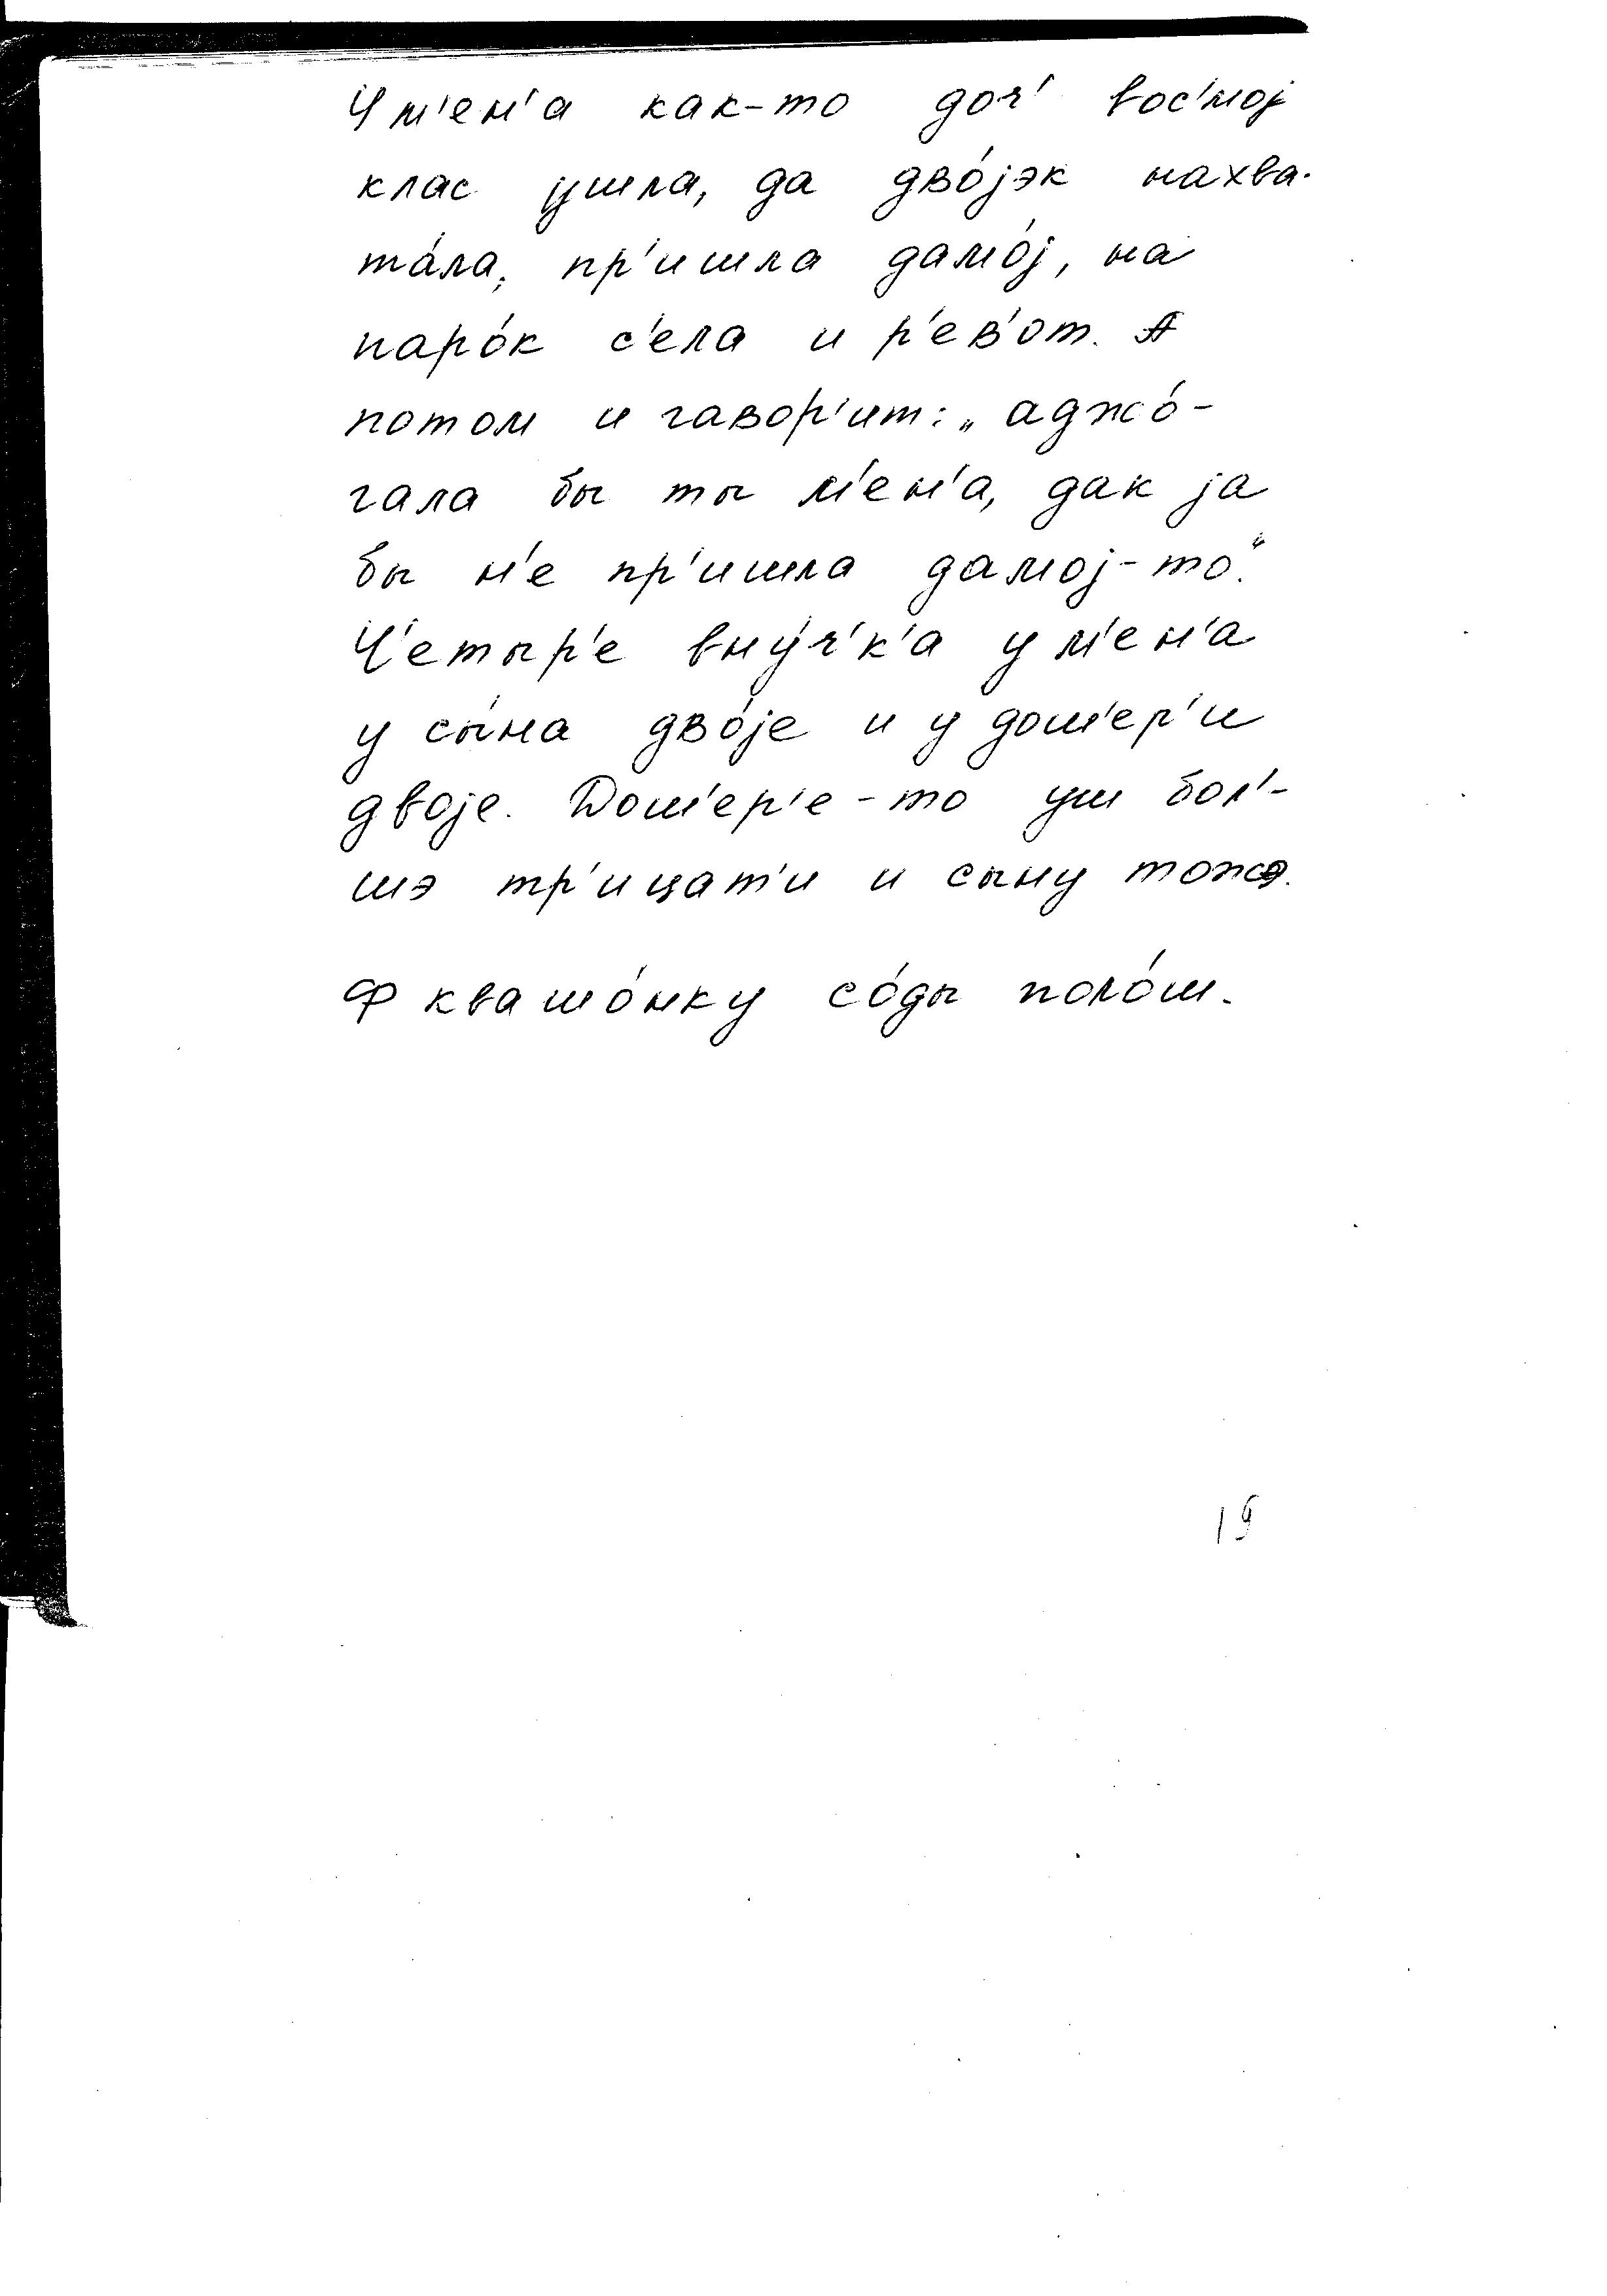 У м'ен'а как-то доч' вос'мој
клас ушла, да дво́јэк нахва-
та́ла, пр'ишла дамо́ј, на
паро́к с'ела и р'ев'от. А
потом и гавор'ит: „аджо́-
гала бы ты м'ен'а, дак ја
бы н'е пр'ишла дамој-то“.
Ч'етыр'е вну́ч'к'а у м'ен'а
у сы́на дво́је и у дош'ер'и
двоје. Дош'ер'е-то уш бол'-
шэ тр'ицат'и и сыну тожэ.
Ф квашо́нку со́ды поло́ш.
19